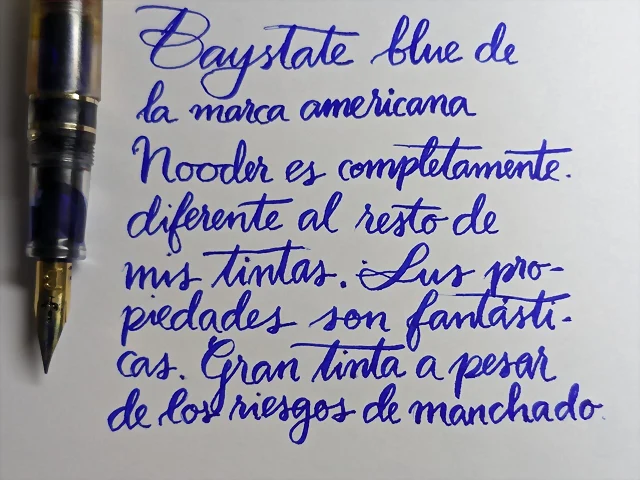 Baystate blue de
la marca americana
Nooder es completamente.
diferente al resto de
mis tintas. Sus pro-
piedades son fantásti-
cas. Gran tinta a pesar
de los riesgos de manchado.